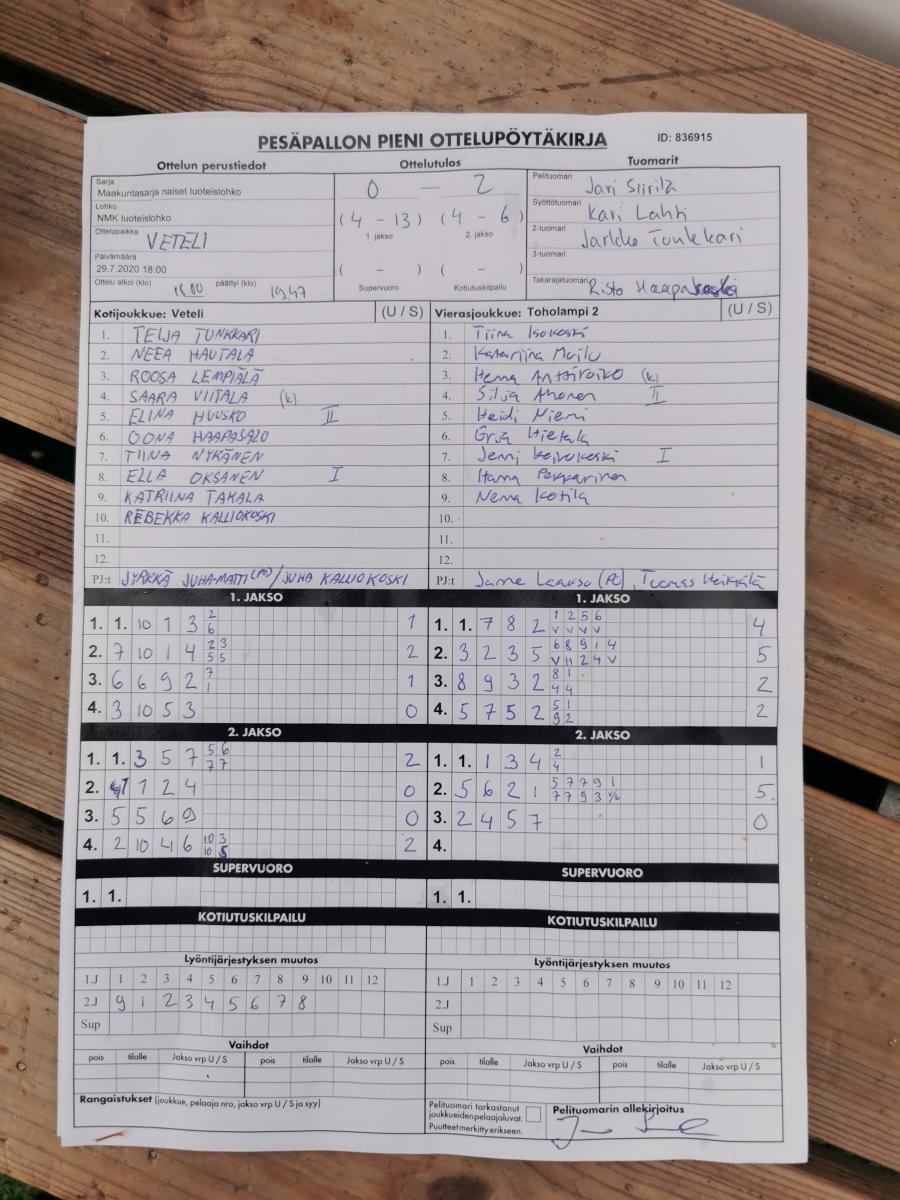 PESÄPALLON PIENI OTTELUPÖYTÄKIRJA ID: 836915
Ottelun perustiedot Ottelutulos Tuomarit
Sarja
Maakuntasarja naiset luoteislohko
Lohko
NMK luoteislohko
Ottelupaikka VETELI
Päivämäärä
29.7.2020 18:00
Ottelu alkoi (klo) 18.00 päättyi (klo) 19.47
0 - 2
(4 - 13) (4 - 6)
1. jakso 2. jakso
( - ) ( - )
Supervuoro Kotiutuskilpailu
Pelituomari Jari Siirilä
Syöttötuomari Kari Lahti
2-tuomari Jarkko Tunkkari
3-tuomari
Takarajatuomari Risto Haapakoski
Kotijoukkue: Veteli (U / S)
1. TEIJA TUNKKARI
2. NEEA HAUTALA
3. ROOSA LEMPIÄLÄ
4. SAARA VIITALA (k)
5. ELINA HUUSKO II
6. OONA HAAPASALO
7. TIINA NYKÄNEN
8. ELLA OKSANEN I
9. KATRIINA TAKALA
10. REBEKKA KALLIOKOSKI
11.
12.
PJ:t JYRKKÄ JUHA-MATTI (PJ) / JUHA KALLIOKOSKI
Vierasjoukkue: Toholampi 2 (U / S)
1. Tiina Isokoski
2. Katariina Muilu
3. Henna Anttiroiko (k)
4. Silja Ahonen II
5. Heidi Niemi
6. Erja Hietala
7. Jenni Koivukoski I
8. Hanna Pekkarinen
9. Nenna Kotila
10.
11.
12.
PJ:t Janne Laakso (PJ), Tuomas Heikkilä
1. JAKSO
1. 1. 10 1 3 2 1
6
2. 7 10 1 4 2 3 2
5 5
3. 6 6 9 2 7 1
1
4. 3 10 5 3 0
1. JAKSO
1. 1. 7 8 2 1 2 5 6 4
V V V V
2. 3 2 3 5 6 8 9 1 4 5
V 11 2 4 V
3. 8 9 3 2 8 1 2
4 4
4. 5 7 5 2 5 1 2
9 2
2. JAKSO
1. 1. 3 5 7 5 6 2
7 7
2. 1 2 4 0
3. 5 5 6 9 0
4. 2 10 4 6 10 3 2
10 5
2. JAKSO
1. 1. 1 3 4 2 1
4
2. 5 6 2 1 5 7 7 9 1 5
7 7 9 3
3. 2 4 5 7 0
4.
SUPERVUORO
1. 1.
SUPERVUORO
1. 1.
KOTIUTUSKILPAILU
KOTIUTUSKILPAILU
Lyöntijärjestyksen muutos
1.J 1 2 3 4 5 6 7 8 9 10 11 12
2.J 9 1 2 3 4 5 6 7 8
Sup
Lyöntijärjestyksen muutos
1.J 1 2 3 4 5 6 7 8 9 10 11 12
2.J
Sup
Vaihdot
pois tilalle Jakso vrp U / S pois tilalle Jakso vrp U / S
Vaihdot
pois tilalle Jakso vrp U / S pois tilalle Jakso vrp U / S
Rangaistukset (joukkue, pelaaja nro, jakso vrp U / S ja syy)
Pelituomari tarkastanut
joukkueiden pelaajaluvat.
Puutteet merkitty erikseen.
Pelituomarin allekirjoitus